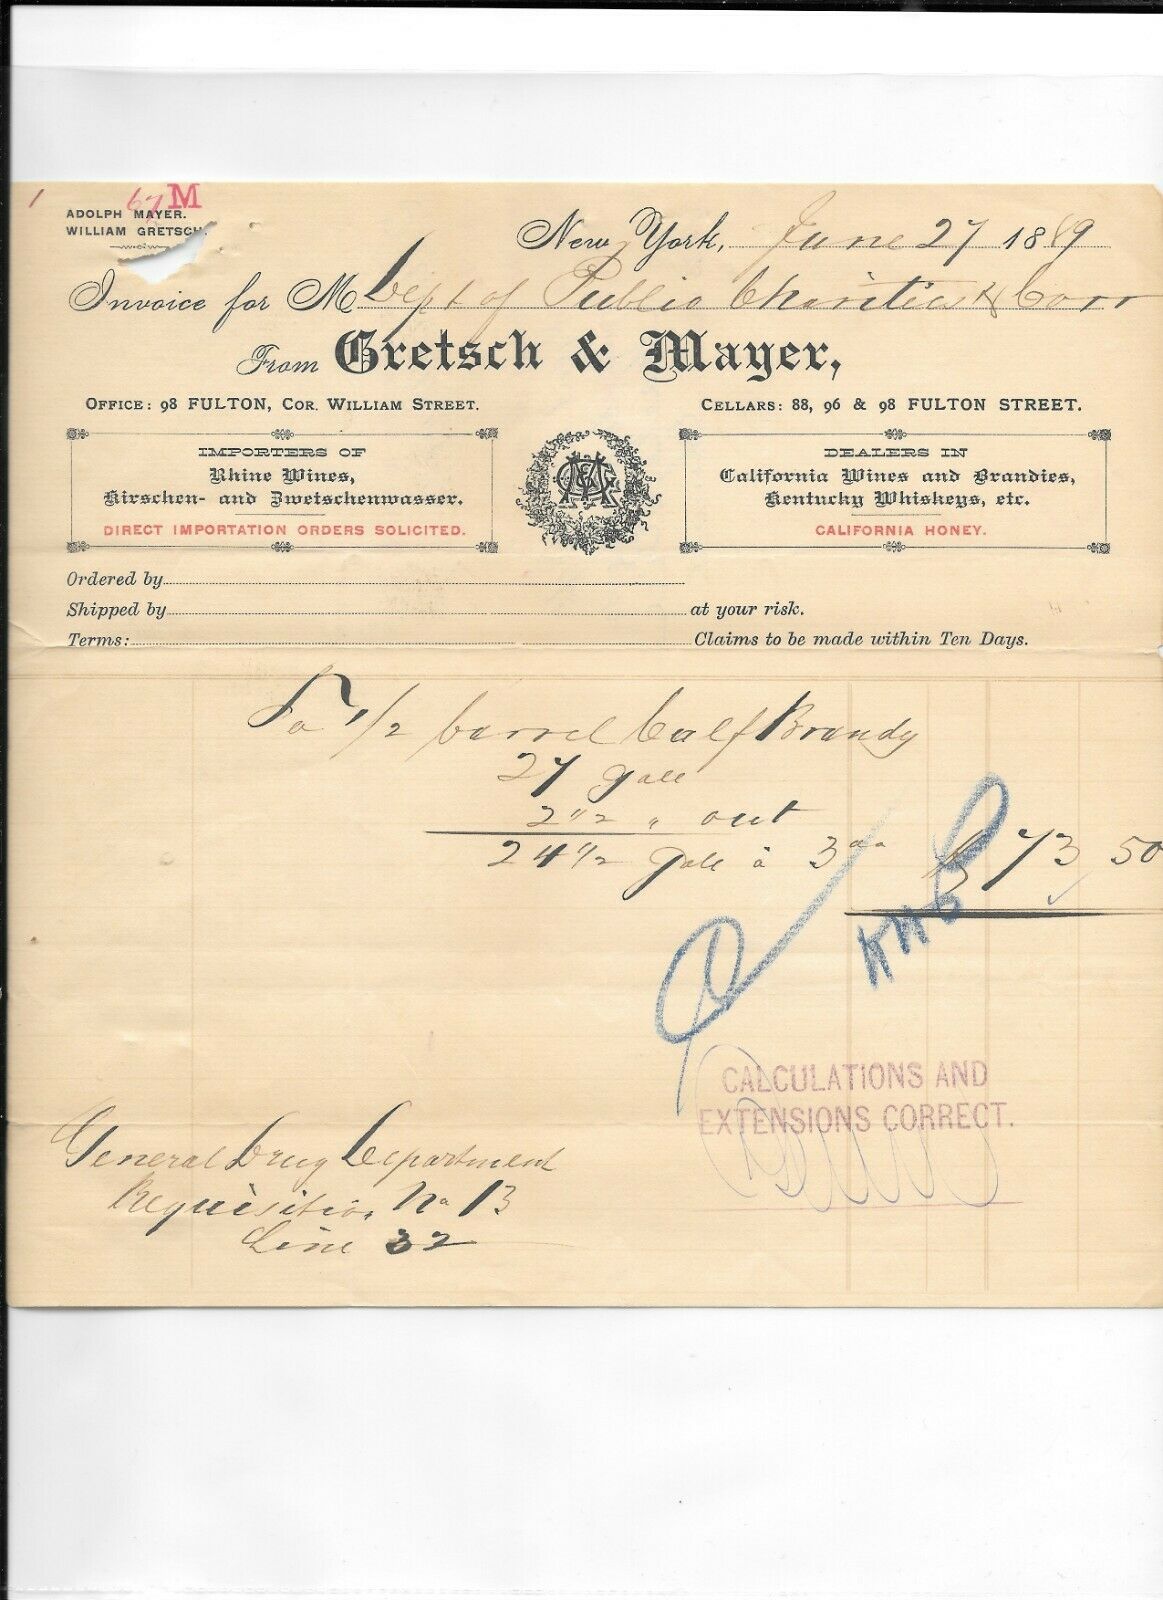 67 M
ADOLPH MAYER.
WILLIAM GRETSCH.
New York, June 27 1889
Invoice for M Dept of Public Charities & Corr
From Gretsch & Mayer,
OFFICE: 98 FULTON, COR. WILLIAM STREET.
CELLARS: 88, 96 & 98 FULTON STREET.
IMPORTERS OF
Rhine Wines,
Kirschen- and Zwetschenwasser.
DIRECT IMPORTATION ORDERS SOLICITED.
DEALERS IN
California Wines and Brandies,
Kentucky Whiskeys, etc.
CALIFORNIA HONEY.
Ordered by
Shipped by at your risk.
Terms: Claims to be made within Ten Days.
To 1/2 barrel Calf Brandy
27 Gall
2 1/2 " out
24 1/2 Gall à 3 00 $ 73 50
CALCULATIONS AND
EXTENSIONS CORRECT.
General Drug Department
Requisition No 13
Line 32